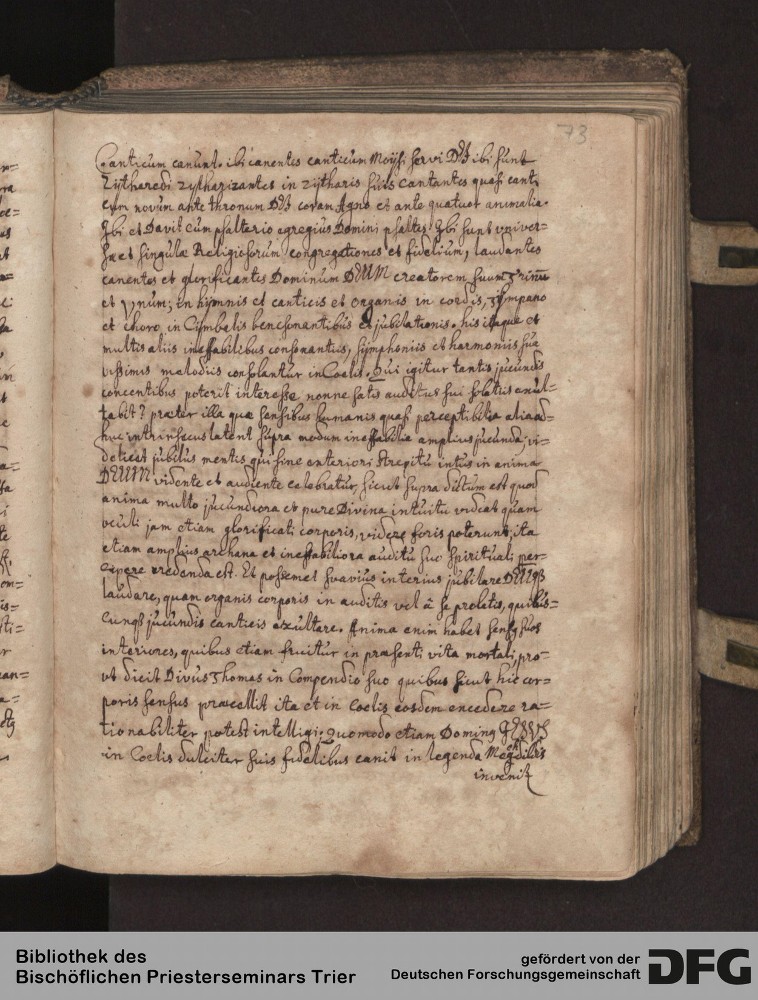 73
Canticum canunt. ibi canentes canticum Moÿsi servi DEI ibi sunt
Zÿtharedi zÿtharizantes in zÿtharis suis cantantes quasi cant,
cum novum ante thronum DEI coram Agno et ante quatuor animalia.
Ibi et David cum psalterio egregius Domini psaltes. Ibi sunt vniver-
sæ et singulæ Religiosorum congregationes et fidelium, laudantes
canentes et glorificantes Dominum DEUM creatorem suum Trinum
et Vnum; in hÿmnis et canticis et organis in cordis, Tÿmpano
et choro, in Cÿmbalis benesonantibus et jubilationis. his itaque et
multis aliis ineffabilibus consonantiis, sÿmphoniis et harmoniis sua
vissimis melodiis consolantur in Coelis. Qui igitur tantis jucundis
concentibus poterit interesse nonne satis auditus sui solatiis exul=
tabit? præter illa quæ sensibus humanis quasi perceptibilia alia ad=
huc intrinsecus latent supra modum ineffabilia amplius jucunda; vi=
delicet jubilus mentis qui sine exteriori strepitu intus in anima
DEUM vidente et audiente celebratur, sicut supra dictum est quod
anima multo jucundiora et pure Divina intuitu videat quam
oculi jam etiam glorificati corporis, videre foris poterunt, ita
etiam amplius archana et ineffabiliora auditu suo spirituali per=
cipere credenda est. Et posse met suavius interius jubilare DEUMq3
laudare, quam organis corporis in auditis vel â se prolatis, quibus=
cunq3 jucundis canticis exultare. Anima enim habet sensus suos
interiores, quibus etiam fruitur in præsenti vita mortali, pro=
vt dicit Divus Thomas in Compendio suo quibus sicut hic cor=
poris sensus præcellit ita et in Coelis eosdem excedere ra=
tionabiliter potest intelligi. Quomodo etiam Dominus JESUS
in Coelis dulciter suis fidelibus canit in legenda Mechdildis
invenit
Bibliothek des
Bischöflichen Priesterseminars Trier
gefördert von der
Deutschen Forschungsgemeinschaft
DFG